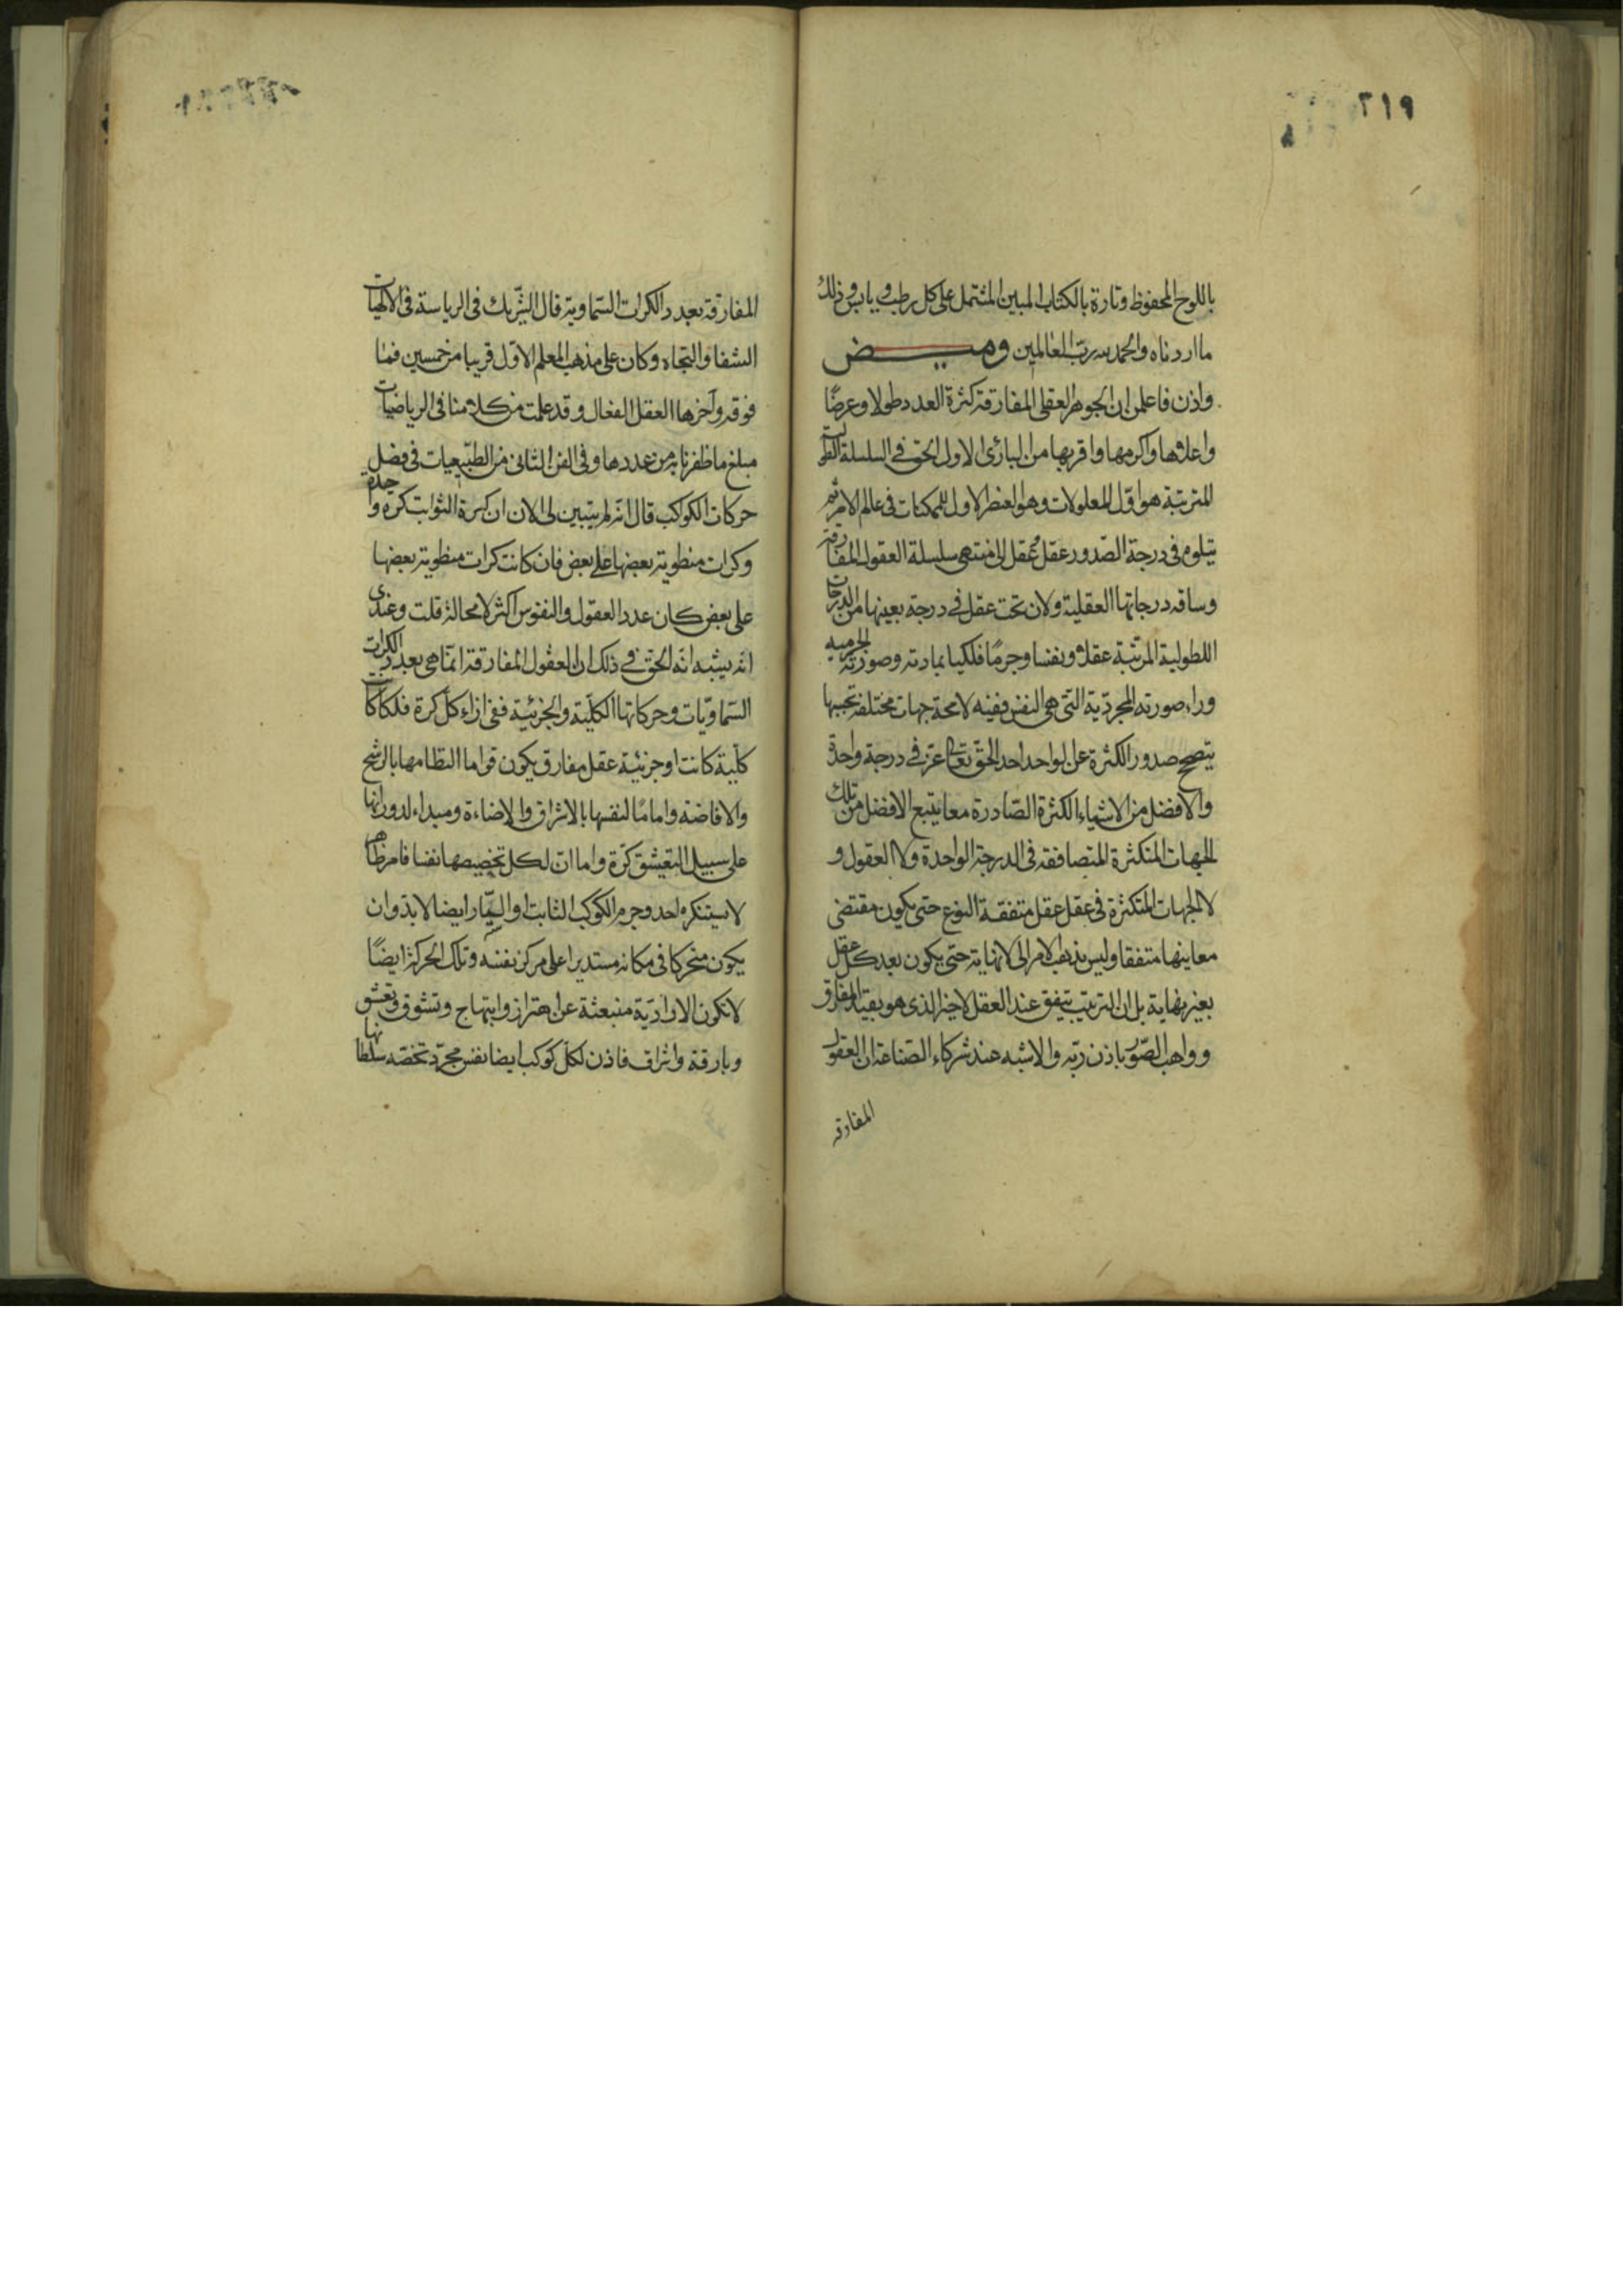 ٢١٩
باللوح المحفوظ وتارة بالكتاب المبين المشتمل على كل رطب ويابس وذلك
ما اردناه والحمد لله رب العالمين وميض
واذن فاعلمن ان الجوهر العقلى المفارقة كثرة العدد طولا وعرضًا
واعلاها واكرمها واقربها من البارئ الاول الحق فى السلسلة الطولية
المترتبة هو اوّل المعلولات وهو العنصر الاول للممكنات فى عالم الامر ثم
يتلوه فى درجة الصّدور عقل وعقل الى منتهى سلسلة العقول المفارقة
وساقه درجاتها العقلية ولان تحت عقل فى درجة بعينها من الدرجات
الطولية المرتبة عقلا ونفسا وجرمًا فلكيا بمادته وصورته الجرمية
وراء صورته المجردية التى هى النفس ففيه لا محة جهات مختلفة بحسبها
يتصحح صدور الكثرة عن الواحد احد الحق تعالى عز فى درجة واحدة
والافضل من الاشياء الكثرة الصّادرة معا يتبع الافضل من تلك
الجهات المتكثرة المتصافقة فى الدرجة الواحدة ولا العقول و
لا الجهات المتكثرة فى عقل عقل متفقة النوع حتى يكون مقتضى
معاينها متفقا وليس يذهب الامر الى لا نهاية حتى يكون بعد كل عقل
بغير نهاية بل ان الترتيب يتفق عند العقل الاخير الذى هو بقية المفارق
وواهب الصّور باذن ربّه والاشبه عند شركاء الصّناعة ان العقول
المفارقه
المفارقة بعدد الكرات السّماوية قال الشّريك فى الرياسة فى الالهيات
الشفا والنجاه وكان على مذهب المعلم الاوّل قريبا من خمسين فما
فوقه وآخرها العقل الفعال وقد علمت من كلامنا فى الرياضيات
مبلغ ما ظفرنا به من عددها وفى الفن الثانى من الطبّيعيات فى فصل
حركات الكواكب قال انه لم يتبين لى الان ان كرة الثوابت كرة واحدة
وكرات منطوية بعضها على بعض فان كانت كرات منطوية بعضها
على بعض كان عدد العقول والنفوس اكثر لا محالة قلت وعندى
انه يشبه انّه الحق فى ذلك ان العقول المفارقة انّما هى بعدد الكرات
السّماويّات وحركاتها الكلّية والجزئية ففى ازاء كل كرة فلكا كانت
كلّية كانت او جزئية عقل مفارق يكون قواما النظامها بالرشح
والافاضه واماما لنفسها بالاشراق والاضاءة ومبداء لدورانها
على سبيل التعشق كرّة واما انّ لكل تخصيصها نفسا فامر ظاهر
لا يستنكره احد وجرم الكوكب الثابت او السّيار ايضا لا بدّ وان
يكون متحركا فى مكانه مستديرا على مركز نفسه وتلك الحركة ايضًا
لا تكون الا ارادّية منبعثة عن اهتزاز وابتهاج وتشوق وتعشق
وبارقة واشراف فاذن لكل كوكب ايضا نفس مجرّد تخصّه سلطانها